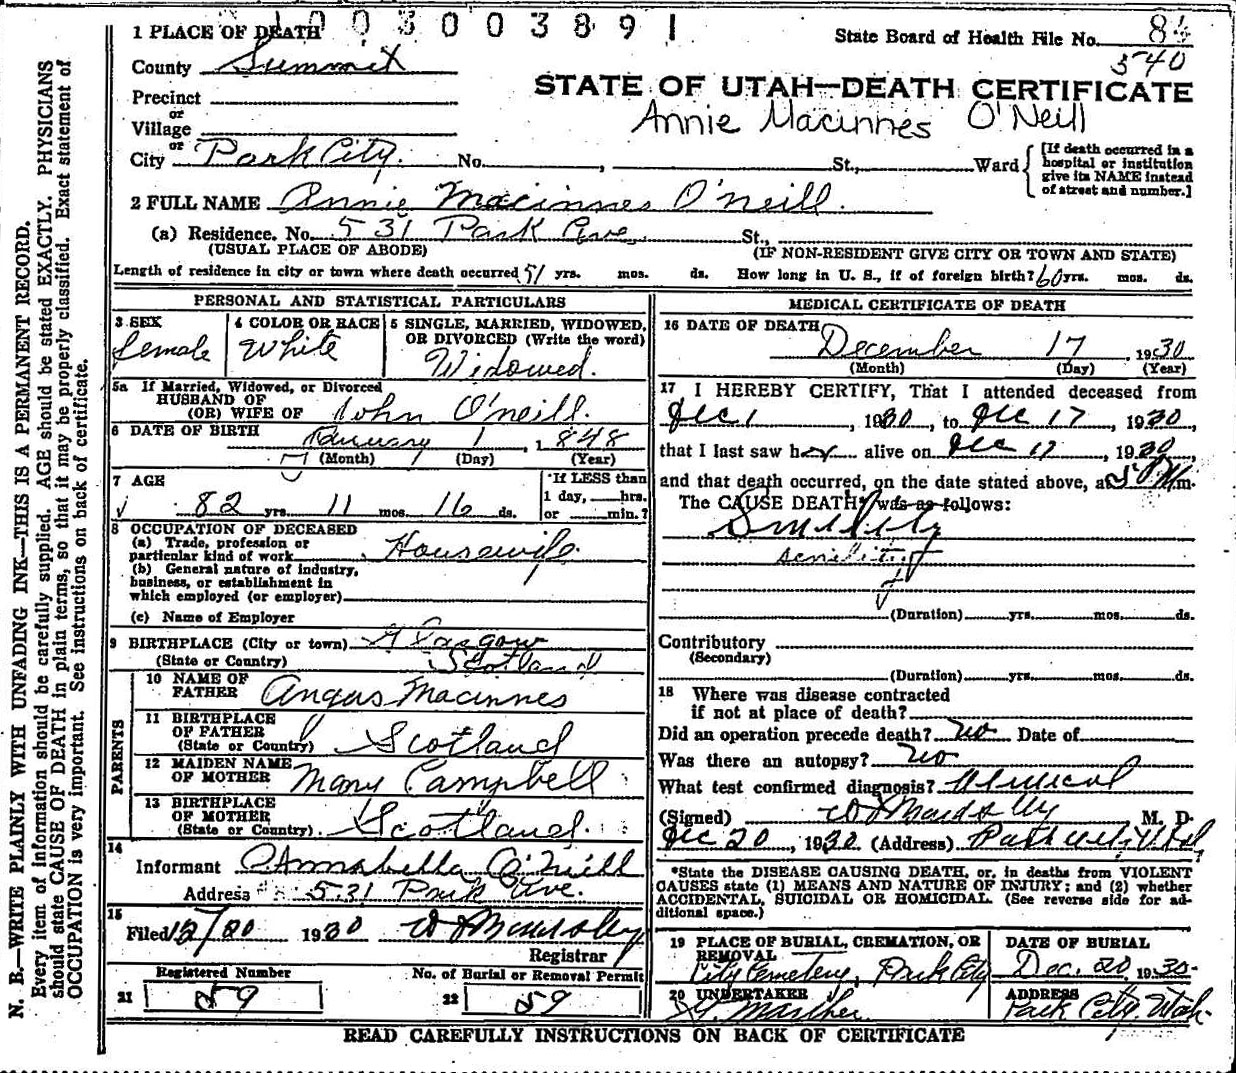 1003003891
1 PLACE OF DEATH
State Board of Health File No. 84
540
County Summit
STATE OF UTAH—DEATH CERTIFICATE
Precinct
Annie Macinnes O'Neill
or
Village
or
City Park City. No. , St., Ward
[If death occurred in a
hospital or institution
give its NAME instead
of street and number.]
2 FULL NAME Annie Macinnes O'neill.
(a) Residence. No. 531 Park Ave. St.,
(USUAL PLACE OF ABODE) (IF NON-RESIDENT GIVE CITY OR TOWN AND STATE)
Length of residence in city or town where death occurred 51 yrs. mos. ds. How long in U. S., if of foreign birth? 60 yrs. mos. ds.
PERSONAL AND STATISTICAL PARTICULARS
3 SEX
Female
4 COLOR OR RACE
White
5 SINGLE, MARRIED, WIDOWED,
OR DIVORCED (Write the word)
Widowed.
5a If Married, Widowed, or Divorced
HUSBAND OF
(OR) WIFE OF John O'neill.
6 DATE OF BIRTH January 1, 1848
(Month) (Day) (Year)
7 AGE
82 yrs. 11 mos. 16 ds.
If LESS than
1 day, hrs.
or min.?
8 OCCUPATION OF DECEASED
(a) Trade, profession or
particular kind of work Housewife.
(b) General nature of industry,
business, or establishment in
which employed (or employer)
(c) Name of Employer
9 BIRTHPLACE (City or town) Glasgow
(State or Country) Scotland
PARENTS
10 NAME OF
FATHER Angus Macinnes
11 BIRTHPLACE
OF FATHER
(State or Country) Scotland
12 MAIDEN NAME
OF MOTHER Mary Campbell
13 BIRTHPLACE
OF MOTHER
(State or Country) Scotland.
14
Informant Annabella O'Neill
Address 531 Park Ave.
15
Filed 12/20 1930
Registrar
Registered Number No. of Burial or Removal Permit
21 59 22 59
MEDICAL CERTIFICATE OF DEATH
16 DATE OF DEATH
December 17, 1930
(Month) (Day) (Year)
17 I HEREBY CERTIFY, That I attended deceased from
Dec 1, 1930, to Dec 17, 1930,
that I last saw her alive on Dec 17, 1930,
and that death occurred, on the date stated above, at 5 P.M.m.
The CAUSE DEATH* was as follows:
Senility
senility
(Duration) yrs. mos. ds.
Contributory
(Secondary)
(Duration) yrs. mos. ds.
18 Where was disease contracted
if not at place of death?
Did an operation precede death? no Date of
Was there an autopsy? no
What test confirmed diagnosis?
(Signed) M. D.
Dec 20, 1930. (Address) Park City Utah,
*State the DISEASE CAUSING DEATH, or, in deaths from VIOLENT
CAUSES state (1) MEANS AND NATURE OF INJURY; and (2) whether
ACCIDENTAL, SUICIDAL OR HOMICIDAL. (See reverse side for ad-
ditional space.)
19 PLACE OF BURIAL, CREMATION, OR
REMOVAL
City Cemetery, Park City
DATE OF BURIAL
Dec. 20, 1930.
20 UNDERTAKER
ADDRESS
Park City. Utah.
READ CAREFULLY INSTRUCTIONS ON BACK OF CERTIFICATE
N. B.—WRITE PLAINLY WITH UNFADING INK—THIS IS A PERMANENT RECORD.
Every item of information should be carefully supplied. AGE should be stated EXACTLY. PHYSICIANS
should state CAUSE OF DEATH in plain terms, so that it may be properly classified. Exact statement of
OCCUPATION is very important. See instructions on back of certificate.